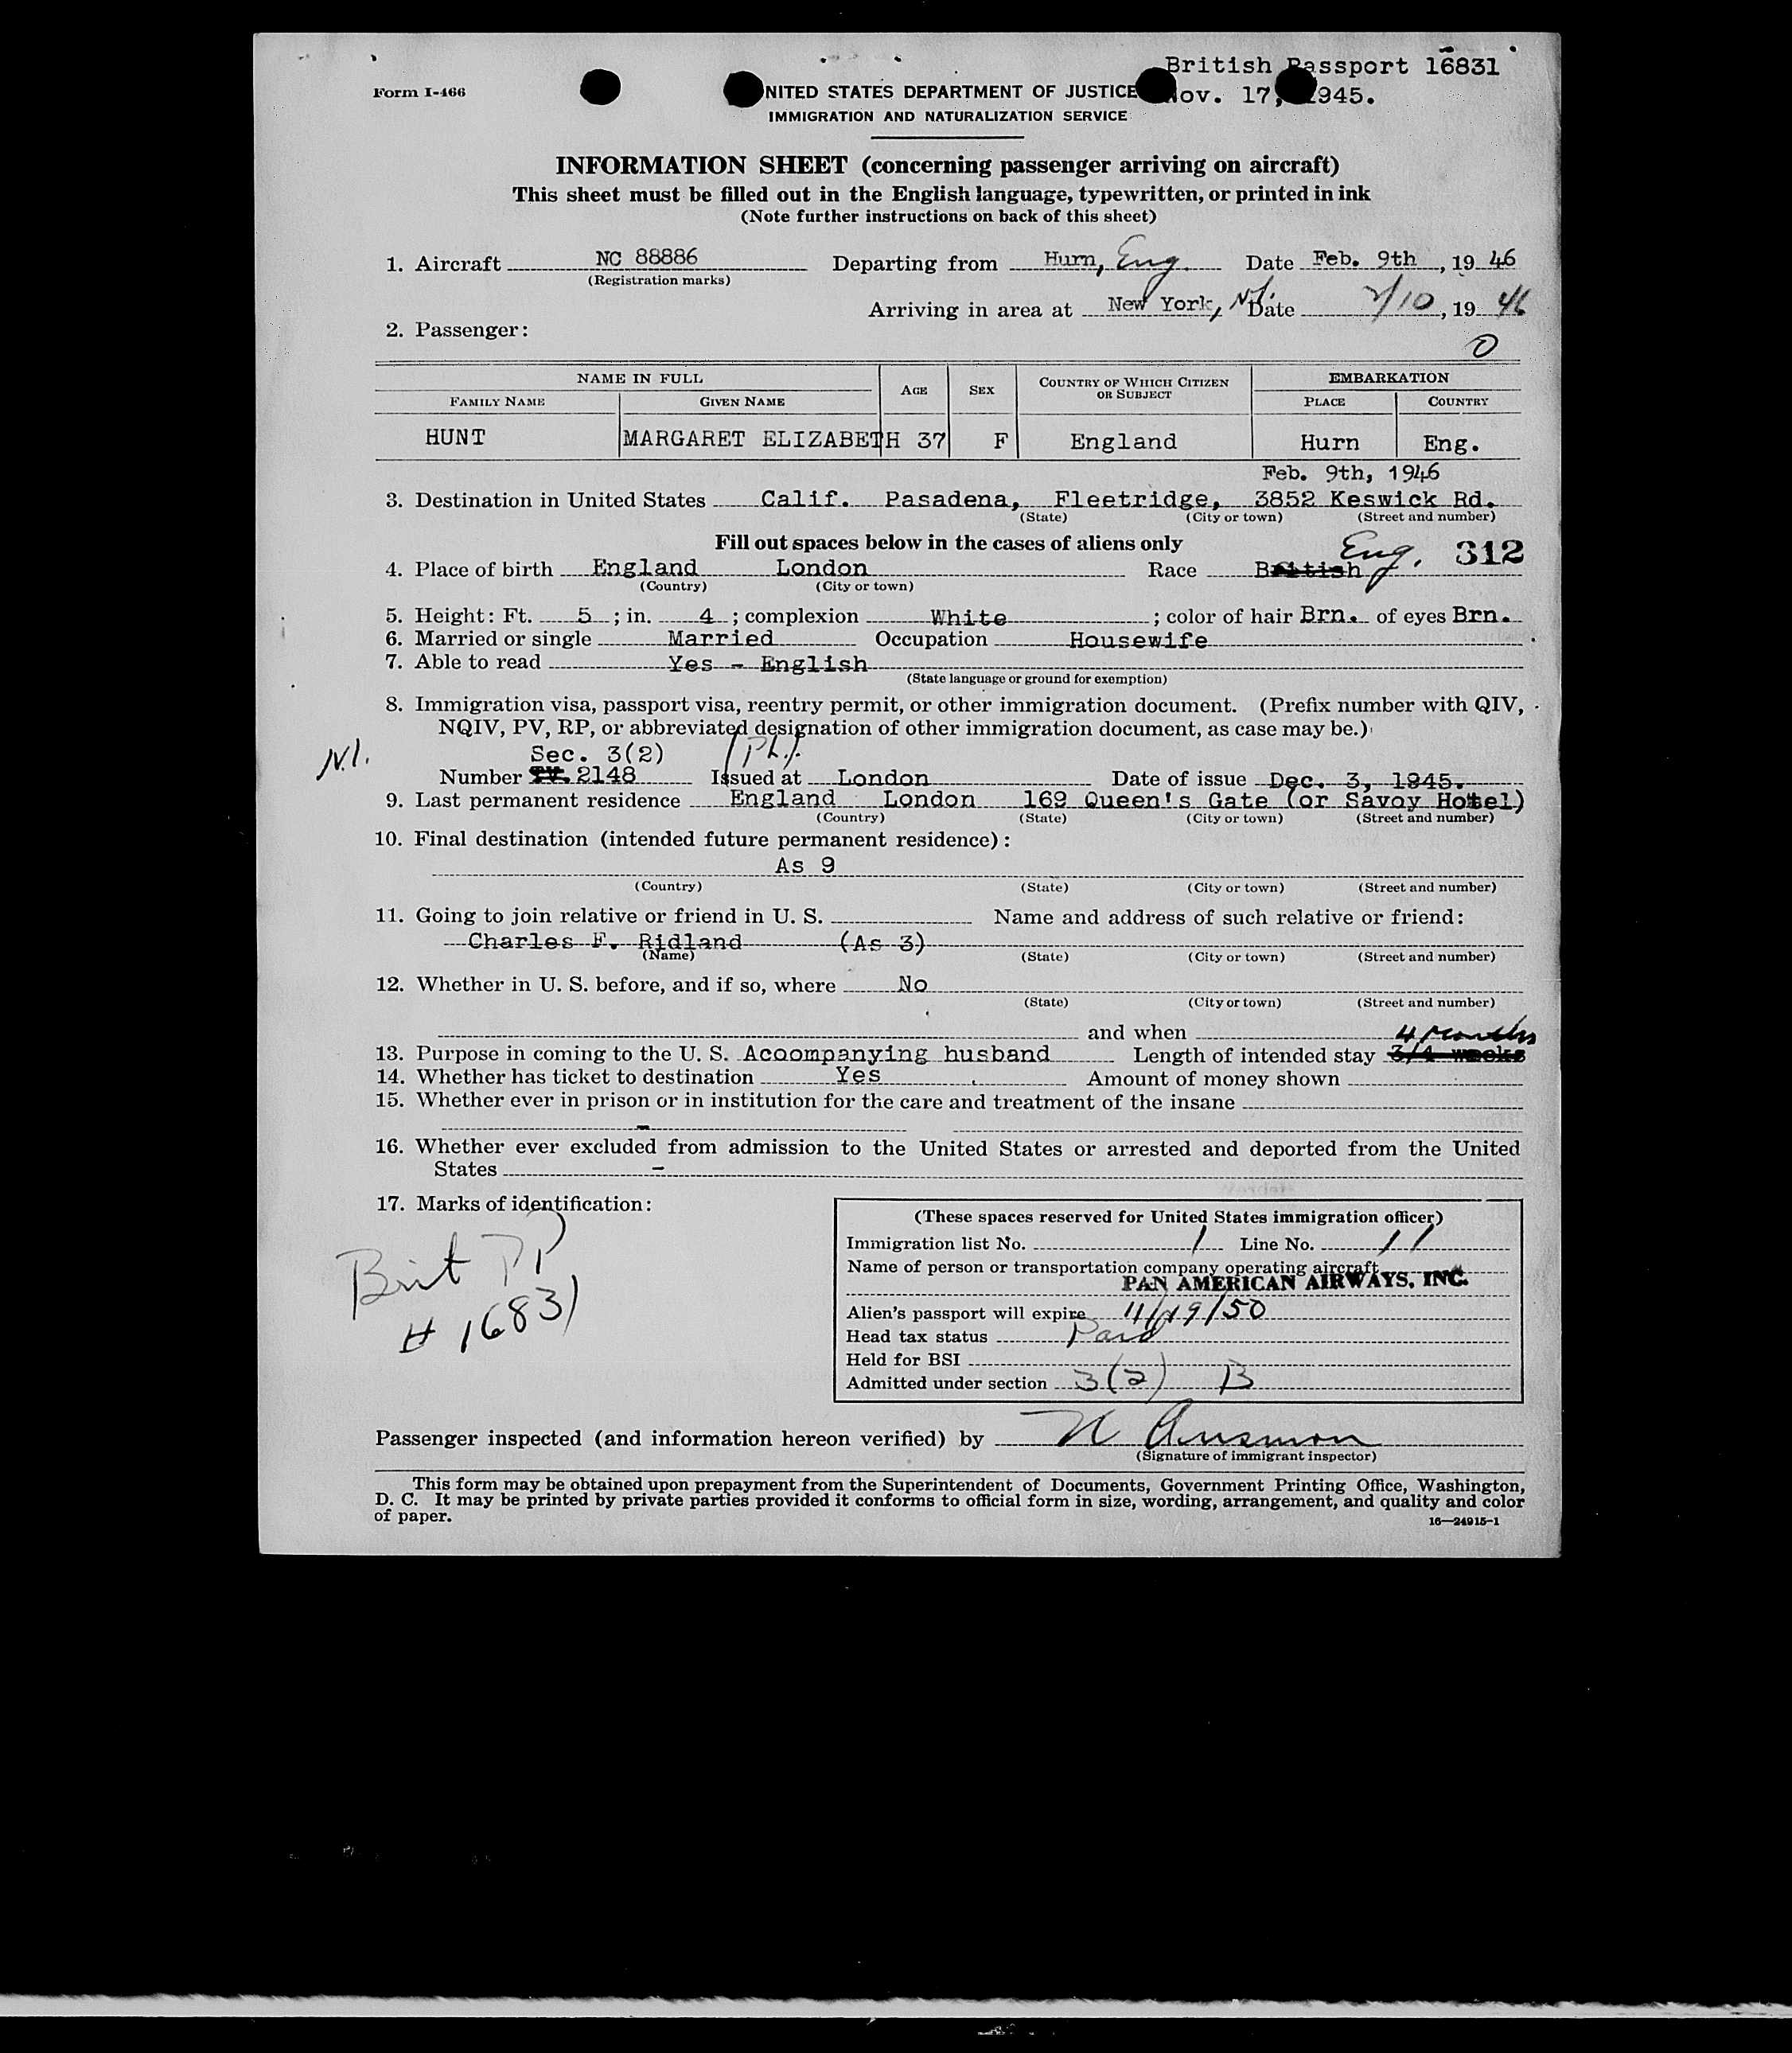 British Passport 16831
Form I-466
NITED STATES DEPARTMENT OF JUSTICE
ov. 17, 1945.
IMMIGRATION AND NATURALIZATION SERVICE
INFORMATION SHEET (concerning passenger arriving on aircraft)
This sheet must be filled out in the English language, typewritten, or printed in ink
(Note further instructions on back of this sheet)
1. Aircraft NC 88886 Departing from Hurn, Eng. Date Feb. 9th, 19 46
(Registration marks)
Arriving in area at New York, NY. Date 2/10, 19 46
2. Passenger:
0
NAME IN FULL AGE SEX COUNTRY OF WHICH CITIZEN OR SUBJECT EMBARKATION
FAMILY NAME GIVEN NAME PLACE COUNTRY
HUNT MARGARET ELIZABETH 37 F England Hurn Eng.
Feb. 9th, 1946
3. Destination in United States Calif. Pasadena, Fleetridge, 3852 Keswick Rd.
(State) (City or town) (Street and number)
Fill out spaces below in the cases of aliens only Eng. 312
4. Place of birth England London Race British
(Country) (City or town)
5. Height: Ft. 5 ; in. 4 ; complexion White ; color of hair Brn. of eyes Brn.
6. Married or single Married Occupation Housewife
7. Able to read Yes - English
(State language or ground for exemption)
8. Immigration visa, passport visa, reentry permit, or other immigration document. (Prefix number with QIV,
NQIV, PV, RP, or abbreviated designation of other immigration document, as case may be.)
N.I. Sec. 3(2) (Ph.).
Number 2148 Issued at London Date of issue Dec. 3, 1945.
9. Last permanent residence England London 169 Queen's Gate (or Savoy Hotel)
(Country) (State) (City or town) (Street and number)
10. Final destination (intended future permanent residence):
As 9
(Country) (State) (City or town) (Street and number)
11. Going to join relative or friend in U. S. Name and address of such relative or friend:
Charles F. Ridland (As 3)
(Name) (State) (City or town) (Street and number)
12. Whether in U. S. before, and if so, where No
(State) (City or town) (Street and number)
and when 4 months
13. Purpose in coming to the U. S. Accompanying husband Length of intended stay 3/4 weeks
14. Whether has ticket to destination Yes Amount of money shown
15. Whether ever in prison or in institution for the care and treatment of the insane
-
16. Whether ever excluded from admission to the United States or arrested and deported from the United
States -
17. Marks of identification:
Brit PP
# 16831
(These spaces reserved for United States immigration officer)
Immigration list No. 1 Line No. 11
Name of person or transportation company operating aircraft
PAN AMERICAN AIRWAYS, INC.
Alien's passport will expire 11/19/50
Head tax status Paid
Held for BSI
Admitted under section 3(2) B
Passenger inspected (and information hereon verified) by
(Signature of immigrant inspector)
This form may be obtained upon prepayment from the Superintendent of Documents, Government Printing Office, Washington,
D. C. It may be printed by private parties provided it conforms to official form in size, wording, arrangement, and quality and color
of paper.
16—24915-1